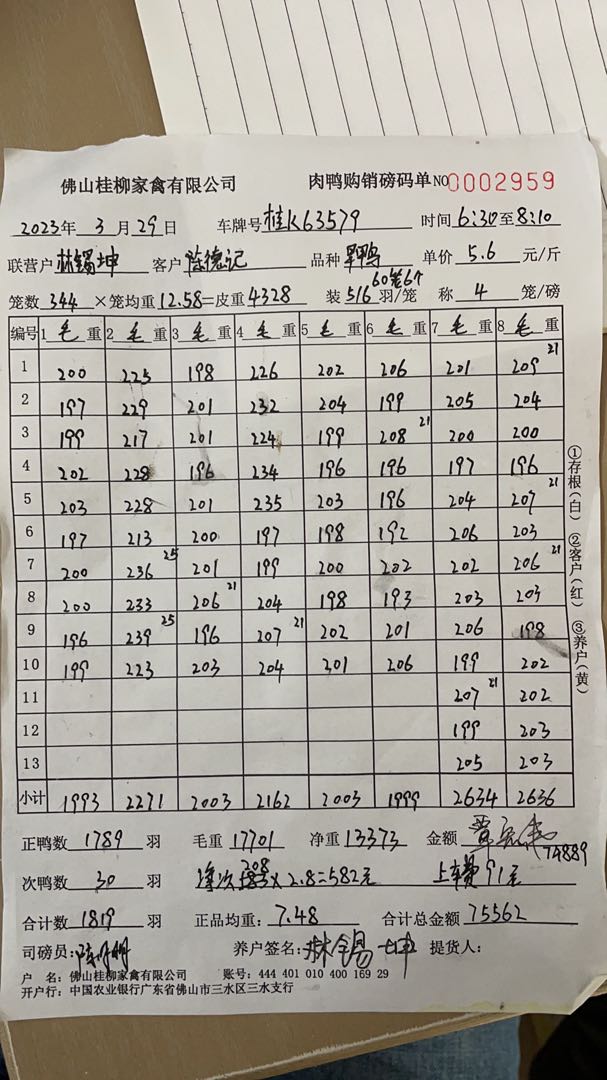 佛山桂柳家禽有限公司 肉鸭购销磅码单 NO 0002959
2023年 3 月 29 日 车牌号 桂K63579 时间 6:30 至 8:10
联营户 林锡坤 客户 陈德记 品种 单价 5.6 元/斤
60笼6个
笼数 344 ×笼均重 12.58 =皮重 4328 装 5/6 羽/笼 称 4 笼/磅
编号 1 毛 重 2 毛 重 3 毛 重 4 毛 重 5 毛 重 6 毛 重 7 毛 重 8 毛 重
1 200 225 198 226 202 206 201 209 21
2 197 229 201 232 204 199 205 204
3 199 217 201 224 199 208 21 200 200
4 202 228 196 234 196 196 197 196
5 203 228 201 235 203 196 204 207 21
6 197 213 200 197 198 192 206 203
7 200 236 25 201 199 200 202 202 206 21
8 200 233 206 21 204 198 193 203 203
9 196 239 25 196 207 21 202 201 206 198
10 199 223 203 204 201 206 199 202
11 207 21 202
12 199 203
13 205 203
小计 1993 2271 2003 2162 2003 1999 2634 2636
①存根(白) ②客户(红) ③养户(黄)
正鸭数 1789 羽 毛重 17701 净重 13373 金额
74889
次鸭数 30 羽 次 208 × 2.8 = 582元 上车费 91元
合计数 1819 羽 正品均重: 7.48 合计总金额 75562
司磅员: 养户签名: 林锡坤 提货人:
户 名: 佛山桂柳家禽有限公司 账号: 444 401 010 400 169 29
开户行: 中国农业银行广东省佛山市三水区三水支行